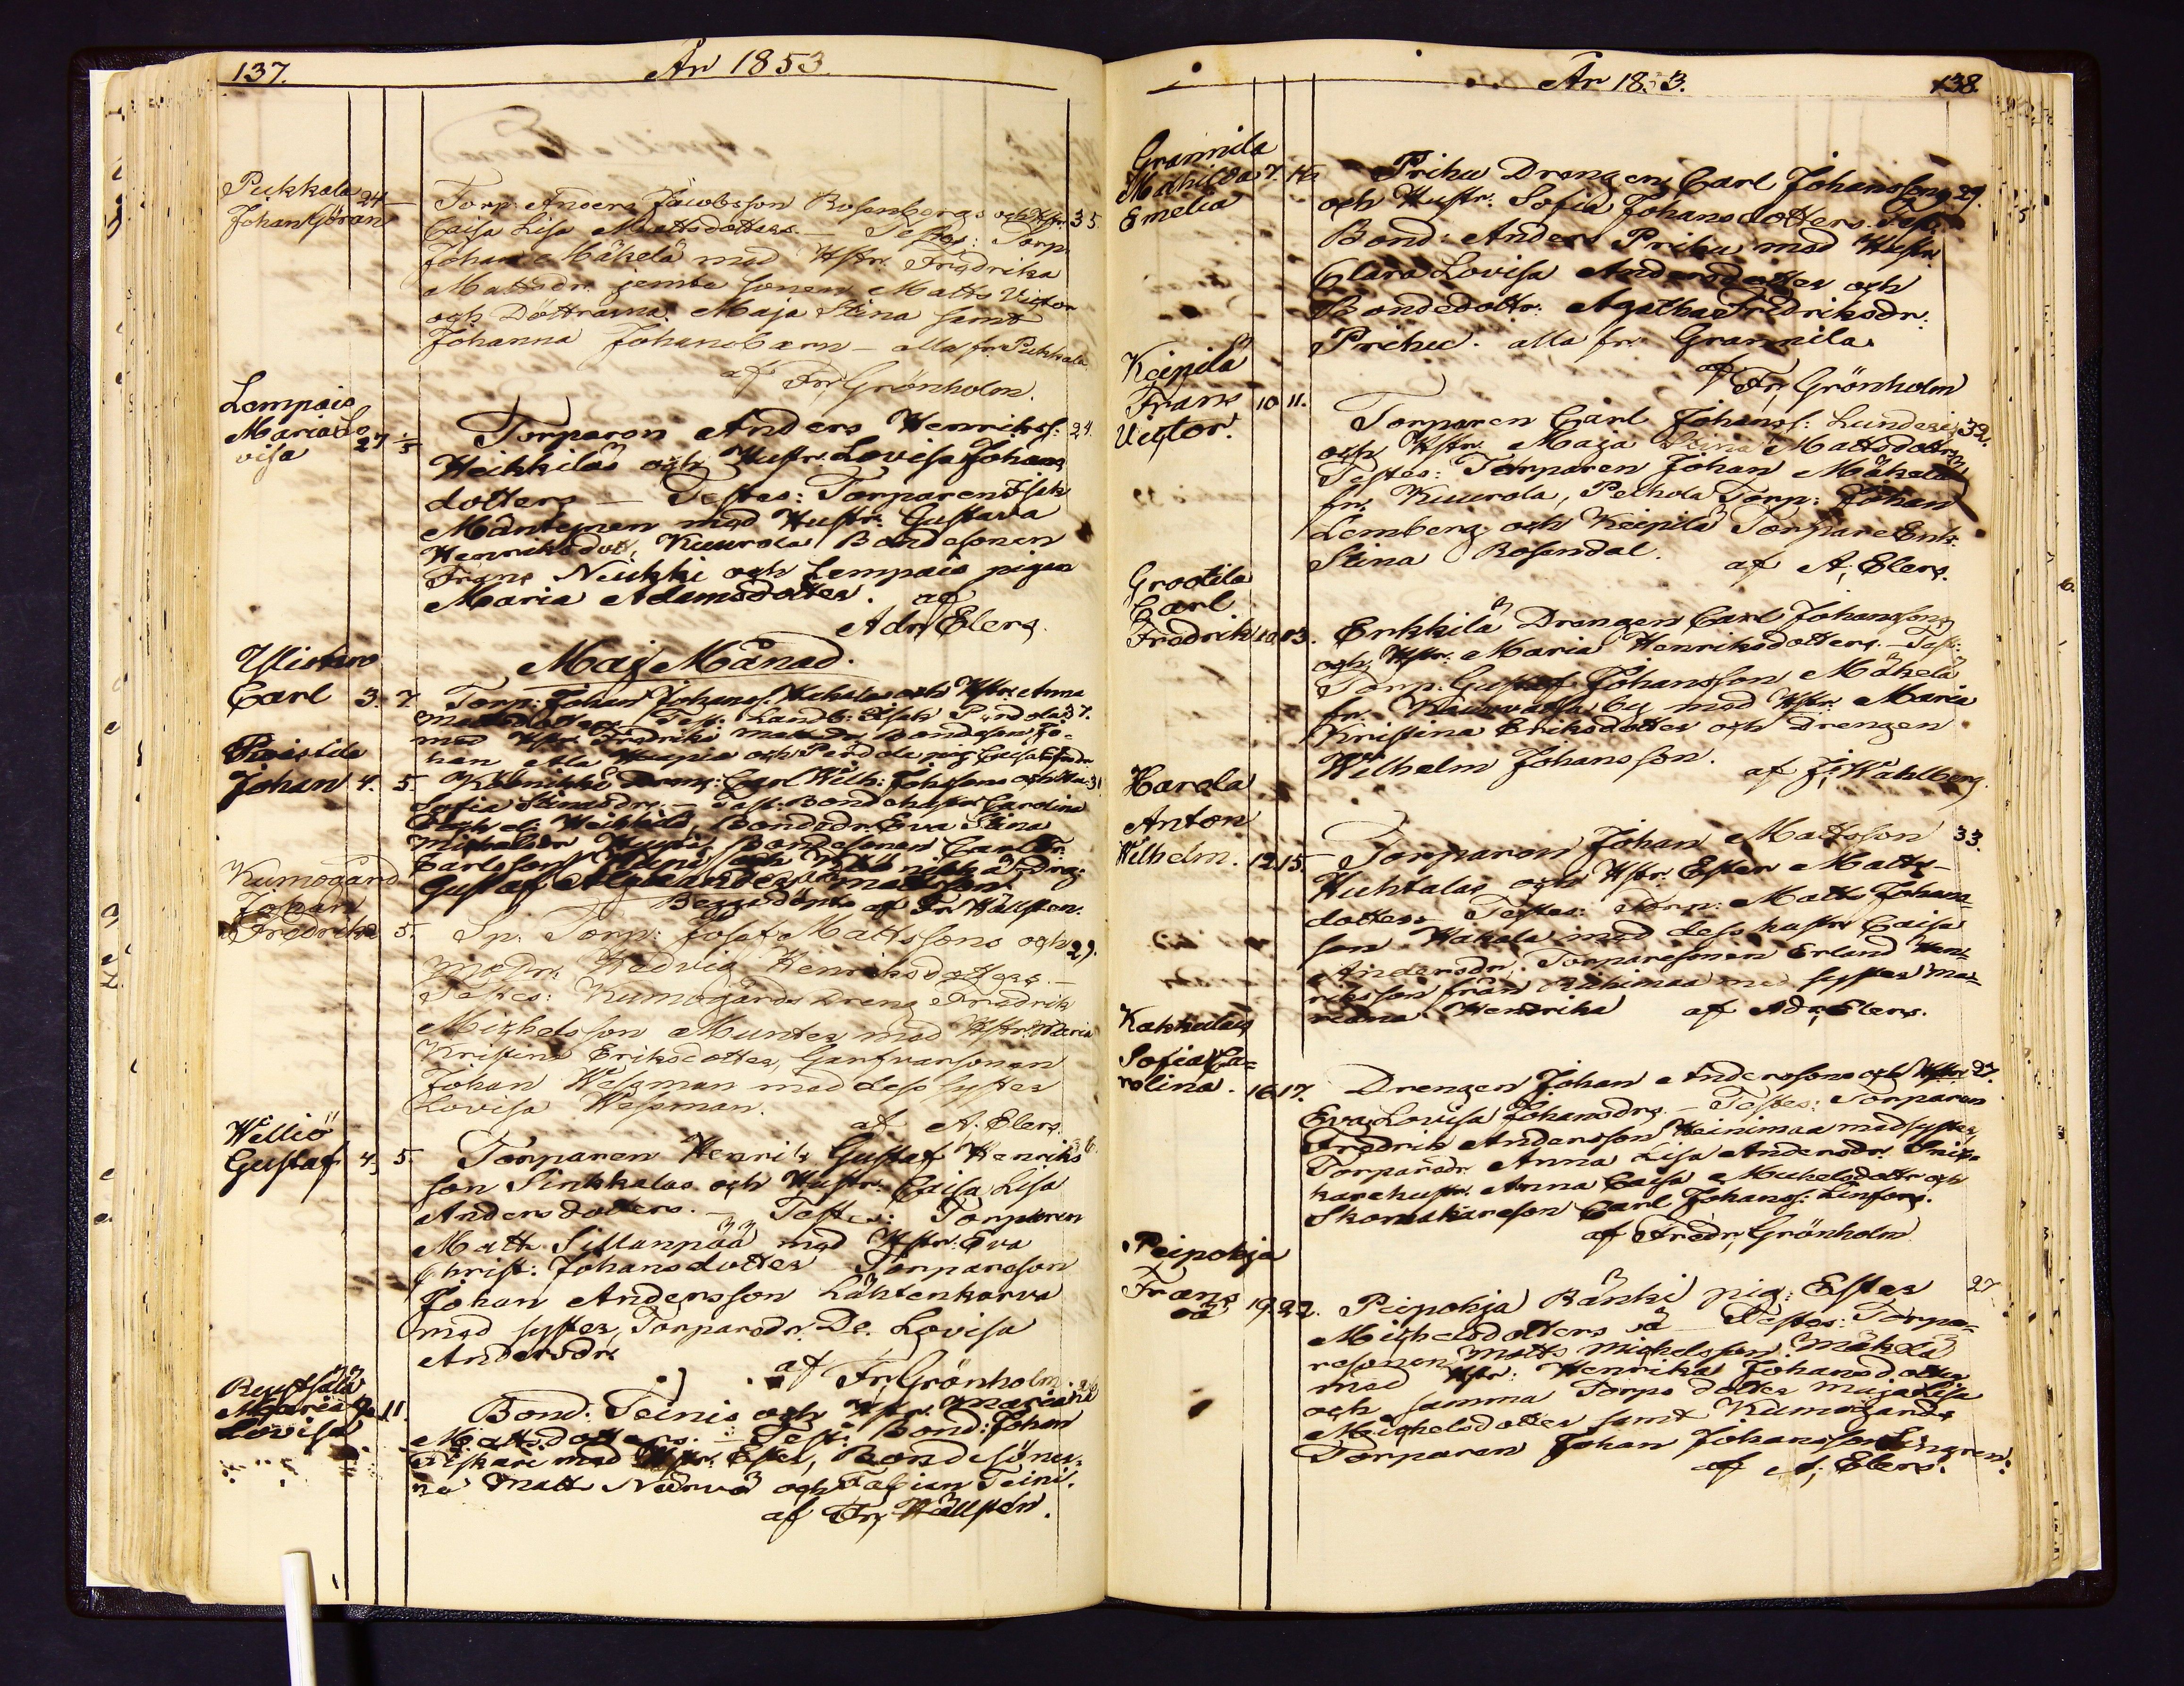 137.
År 1853.
Pukkala 24
Johan Göran
Torp. Anders Jacobsson Rosenbergs och Hstr. 35
Caisa Lisa Mattsdotters. — Testes: Torp.
Johan Mäkelä med Hstr. Fredrika
Mattsdr. jemte sonen Matts Victor
och Döttrarna Maja Stina samt
Johanna Johansbarn — alla fr. Pukkala
af Fr. Grönholm.
Lempais
Maria Lo
visa 27 1/5
Torparen Anders Henrikss: 24.
Heikkiläs och Hustr. Lovisa Johans
dotters — Testes: Torparen Isak
Mäntynen med Hustr. Gustava
Henriksdott, Kuurola Bondesonen
Frans Neukki och Lempais pigan
Maria Adamsdotter. af
Adr. Elers.
Maj Månad.
Ylistaro
Carl 3. 7
Torp: Johan Johanss. och Hstr. Anna
Mattsdotters Test: Landb: Isak Perdola 37.
med Hstr. Fredrika Matsdr Bondeson Jo-
han Ala och Perdola pig. Caisa
Johan 4. 5
Drang: Carl Wilh: Johssons och 31
Sofia Stinasdrs. — Test. Bondehustr Carolina
Heikkilä, Bondedr. Eva Stina
Michelsdr Bondesonen Carl Fr:
Carlsson och drg:
Gustaf Alexander Mattsson.
af Fr. Hällsten.
Kumogård
Johan
Fredrik 5.
Sp. Torp: Josef Mattssons och 29.
Hedvig Henriksdotters —
Testes: Kumogårds Dreng Fredrik
Michelsson Munter med Hstr. Maria
Kristina Eriksdotter, Garfvarsonen
Johan Wessman med dess syster
Lovisa Wessman.
af A. Elers.
Williö
Gustaf 4. 5.
Torparen Henrik Gustaf Henriks 36
son Sinkkalas och Hustr. Caisa Lisa
Andersdotters. — Testes: Torparen
Matts Sillanpää med Hstr. Eva
Christ: Johansdotter Torpareson
Johan Andersson Lähtenkarva
med syster, Torparedr. De. Lovisa
Andersdr.
af Fr. Grönholm. 26
Maria 9. 11.
Lovisa
Bond: Teinis och Hstr. Mariana
Mattsdotters. — Test: Bond: Johan
Piskari med Hstr. Ester, Bondesöner-
na Matts Närvä och Fabian Teini.
af Fr. Hällstén.
År 1853.
138.
Grannila
Mathilda 7. 10
Emelia
Prihu Drengen Carl Johanssons 29.
och Hustr: Sofia Johansdotters. Test.
Bond: Anders Prihu med Hustr
Clara Lovisa Andersdotter och
Bondedottr: Agatha Fredriksdr:
Prihu. alla fr. Grannila
af Fr. Grönholm
Keipilä
Frans 10 11.
Victor.
Torparen Carl Johanss: Lunden 32.
och Hstr. Maja Stina Mattsdotters
Testes: Torparen Johan Mäkelä
fr. Kuurola, Pelhola Torp: Johan
Lemberg och Keipilä Torpare Enk.
Stina Rosendal.
af A. Elers.
Grootila
Carl
Fredrik 10. 13.
Erkkilä Drengen Carl Johanssons
och Hstr. Maria Henriksdotters. — Test:
Torp. Gustaf Johansson Mäkelä
fr. by med Hstr. Maria
Kristina Eriksdotter och Drengen
Wilhelm Johansson.
af J. Wahlberg.
Harola
Anton
Wilhelm. 12. 15.
Torparen Johan Mattsson 33.
Huhtalas och Hstr. Ester Matts-
dotters Testes: Torp: Matts Johans-
son Hakala med dess hustr. Caisa
Andersdr, Torparesonen Erland Hen-
riksson från Riihimaa med syster Ma-
riana Henrika
af Adr. Elers.
Kakkulais
Sofia Ca-
rolina. 16. 17.
Drengen Johan Anderssons och Hstr. 27.
Eva Lovisa Johansdrs. — Testes: Torparen
Fredrik Andersson Heinimaa med syster
Torparedr. Anna Lisa Andersdr. Snic-
karehustr. Anna Caisa Michelsdottr och
Skomakareson Carl Johanss: Linfors.
af Fredr. Grönholm
Peipohja
Frans
oä 19. 22.
Piepohja Bänki pig: Ester 27
Michelsdotters oä Testes: Torpa-
resonen Matts Michelsson Mäkelä
med Hstr: Henrika Johansdotter
och samma Torps dotter Maja Lisa
Michelsdotter samt Kumogårds
Torparen Johan Johansson Lingren.
af A. Elers.